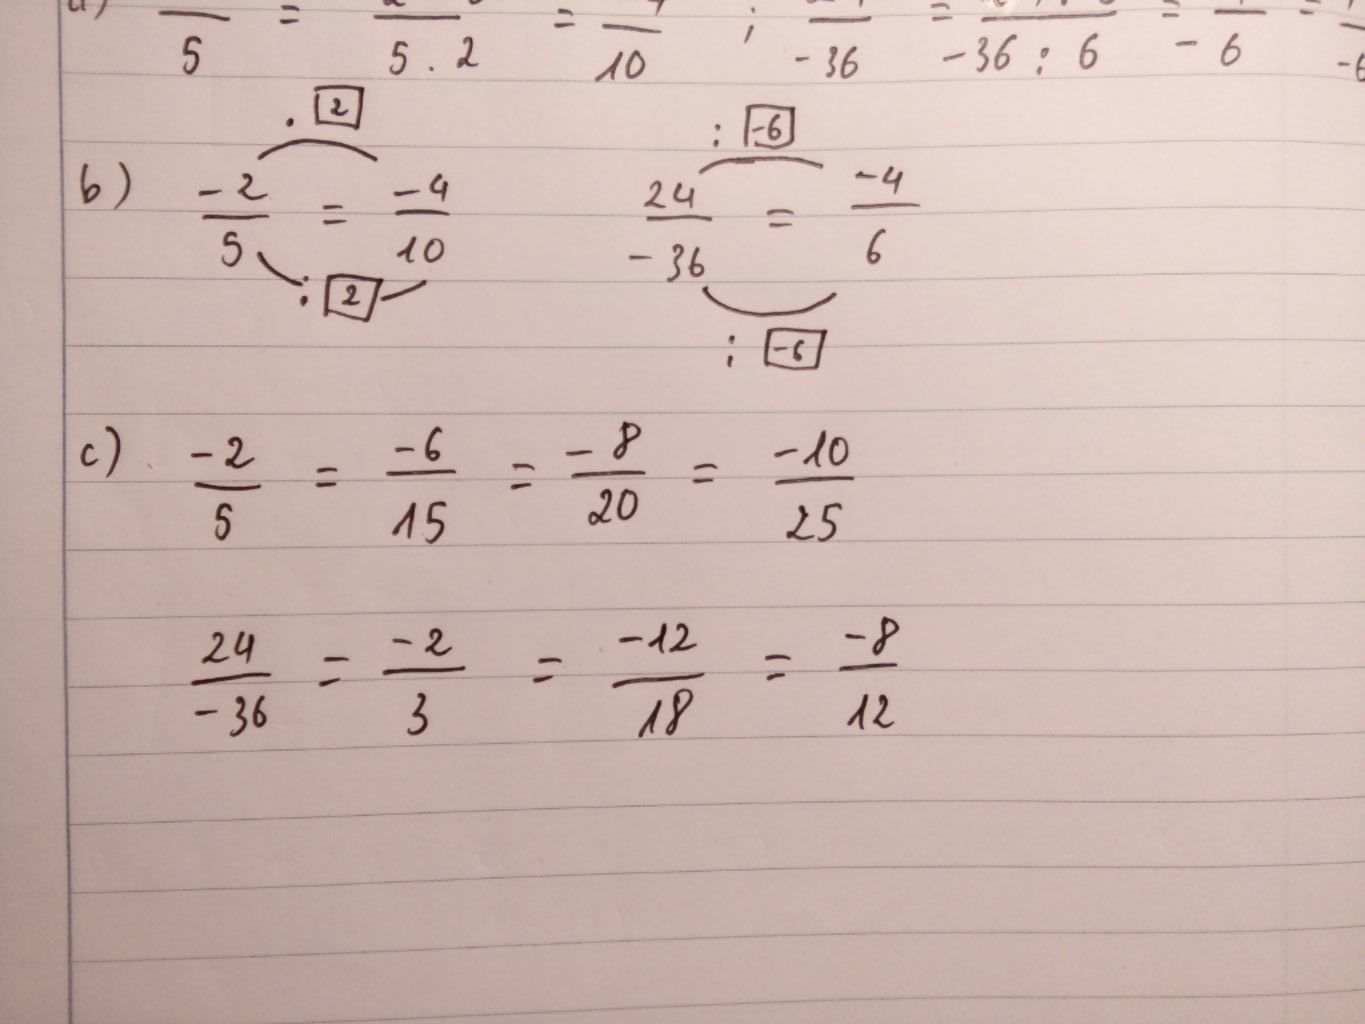 5 = 5 . 2 = 10 ; -36 = -36 : 6 = -6 =
. 2 : -6
b) -2/5 = -4/10 24/-36 = -4/6
: 2 : -6
c) -2/5 = -6/15 = -8/20 = -10/25
24/-36 = -2/3 = -12/18 = -8/12